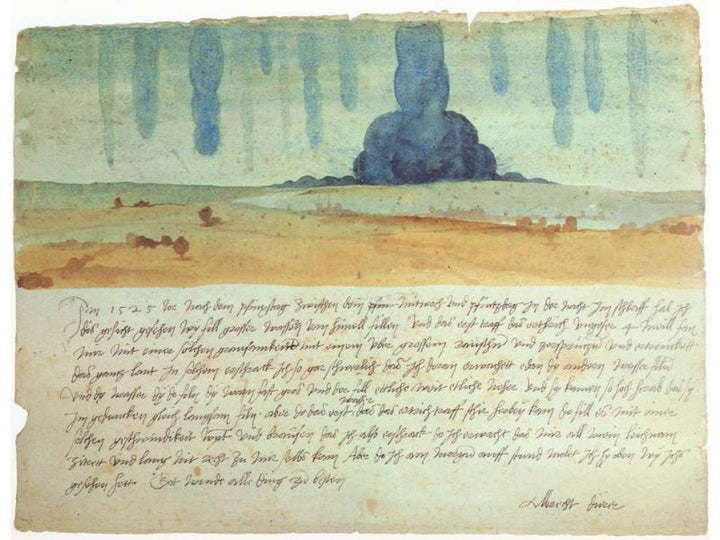 Im 1525 Jor nach dem pfinxstag zwischen dem mitwoch und pfintzdag in der nacht im schlaff hab ich
dis gesicht gesehen wy fill grosser wassern vom himell fillen Und das erst traff das erthrich ungefer 4 meill fan
mir mit einer solchen grausamkeitt mit einem uber grossem raüschn und zersprützn und ertrenckett
das gantz lant In solchem erschrack ich so gar schwerlich das ich doran erwachett edan dy andern wasser filn
Und dy wasser dy do filn dy warn fast gros und der fill ettliche weit etliche neher und sy kamen so hoch herab das sy
im gedancken gleich langsam filn. aber do das erst wasser das das ertrich traff schir herbey kam do fill es mit einer
solchen geschwindikeit wynt und braüsen das ich also erschrack do ich erwacht das mir all mein leichnam
zitrett und lang nit recht zu mir selbs kam Aber do ich am morgn auff stund molet ich hy oben wy ichs
gesehen hett. Got wende alle ding zu besten
Albrecht dürer